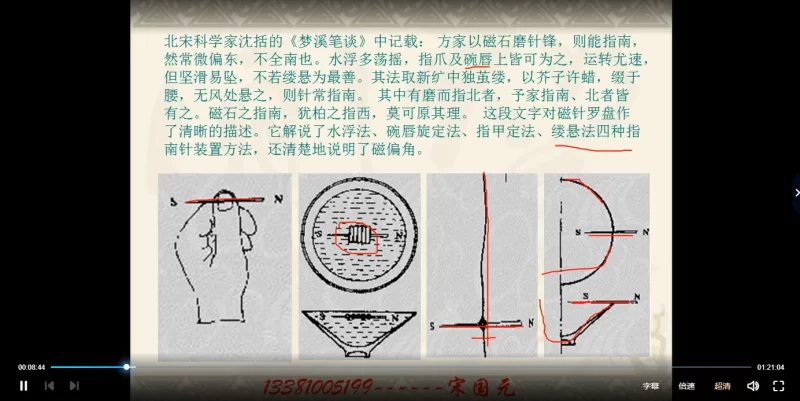 北宋科学家沈括的《梦溪笔谈》中记载： 方家以磁石磨针锋，则能指南，
然常微偏东，不全南也。水浮多荡摇，指爪及碗唇上皆可为之，运转尤速，
但坚滑易坠，不若缕悬为最善。其法取新纩中独茧缕，以芥子许蜡，缀于
腰，无风处悬之，则针常指南。 其中有磨而指北者，予家指南、北者皆
有之。磁石之指南，犹柏之指西，莫可原其理。 这段文字对磁针罗盘作
了清晰的描述。它解说了水浮法、碗唇旋定法、指甲定法、缕悬法四种指
南针装置方法，还清楚地说明了磁偏角。
S N
S N
S N
S N
S N
S N
00:08:44
01:21:04
字幕 倍速 超清
13381005199------宋国元